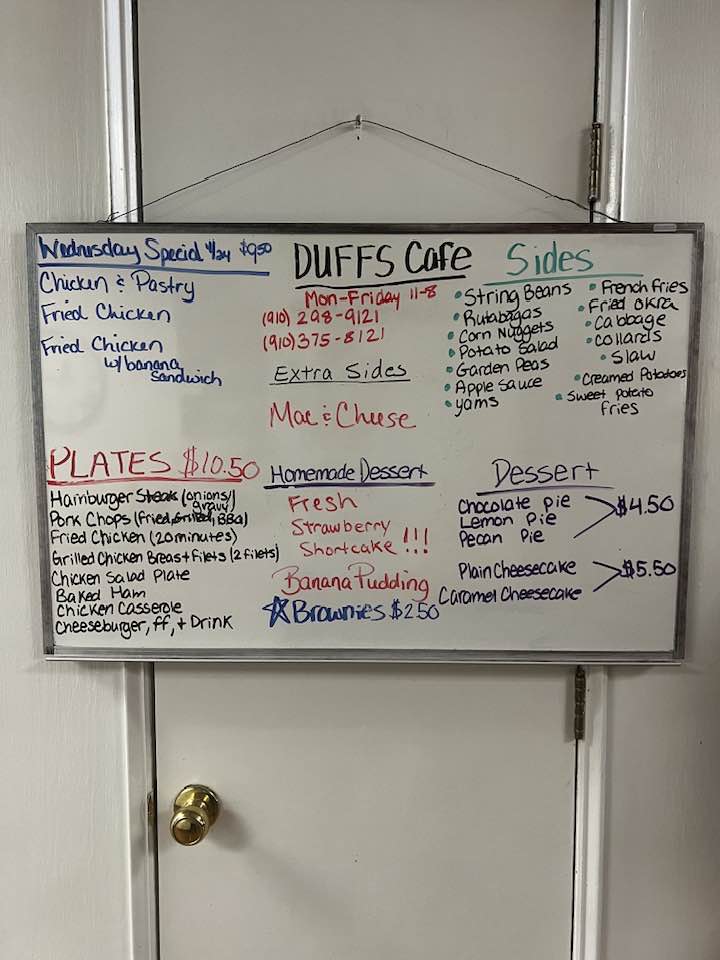 Wednesday Special 4/24 $9.50
Chicken & Pastry
Fried Chicken
Fried Chicken
w/banana
Sandwich
DUFFS Cafe
Mon-Friday 11-8
(910) 298-9121
(910) 375-8121
Extra Sides
Mac & Cheese
Sides
• String Beans
• Rutabagas
• Corn Nuggets
• Potato Salad
• Garden Peas
• Apple Sauce
• yams
• French Fries
• Fried Okra
• Cabbage
• Collards
• Slaw
• Creamed Potatoes
• Sweet Potato
Fries
PLATES $10.50
Hamburger Steak (onions/
gravy)
Pork Chops (Fried, Grilled, BBQ)
Fried Chicken (20 minutes)
Grilled Chicken Breast Filets (2 filets)
Chicken Salad Plate
Baked Ham
Chicken Casserole
Cheeseburger, FF, + Drink
Homemade Dessert
Fresh
Strawberry
Shortcake !!!
Banana Pudding
☆ Brownies $2.50
Dessert
Chocolate Pie
Lemon Pie
Pecan Pie
$4.50
Plain Cheesecake
Caramel Cheesecake
$5.50